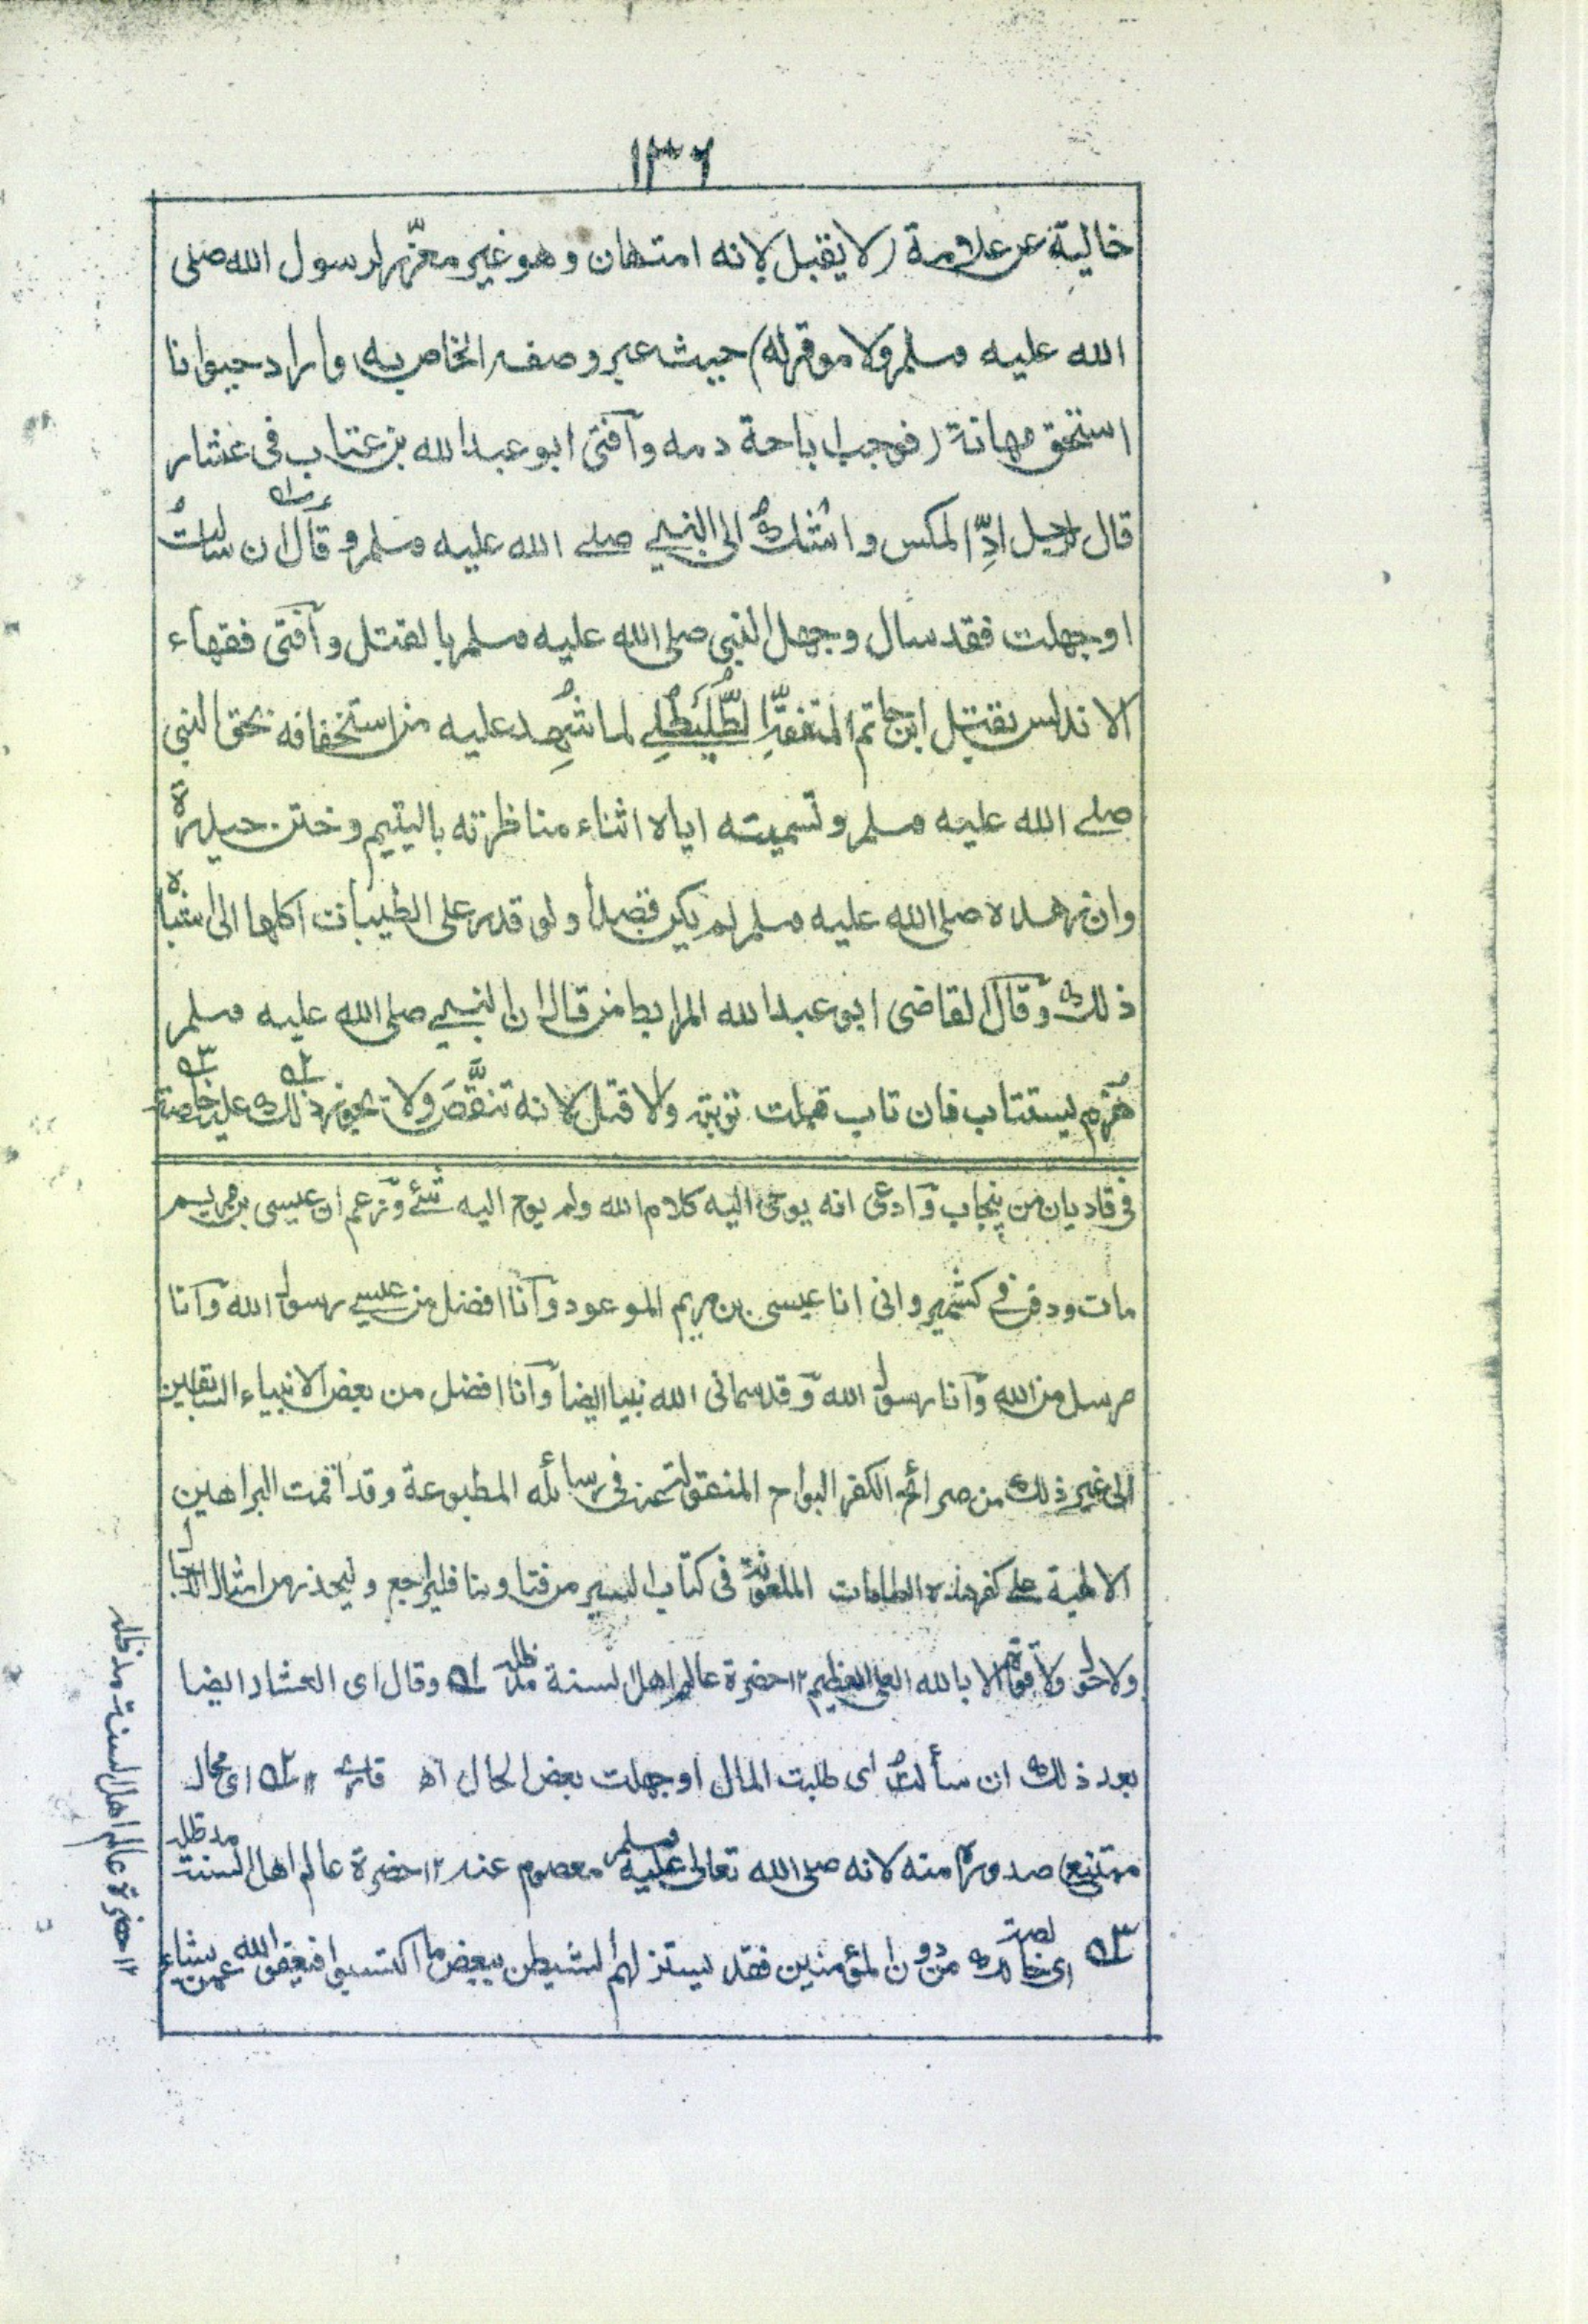 ١٣٦
خالية عن علامة (لا يقبل لانه امتهان وهو غير معزّر لرسول الله صلى
الله عليه وسلم ولا موقر له) حيث عبر وصفه الخاص به واراد حيوانا
استحق مهانة (فوجب اباحة دمه وآفتى ابو عبد الله بن عتاب فى عشار
قال لرجل ادِّ المكس واشك الى النبي صلے الله عليه وسلم و قال ان سالتُ
او جهلت فقد سال وجهل النبى صلى الله عليه وسلم بالقتل وآفتى فقهاء
الاندلس بقتل ابن حاتم المتفقه الطُّلَيطُلِے لما شُهِد عليه من استخفافه بحق النبى
صلے الله عليه وسلم وتسميته اياه اثناء مناظرته باليتيم وختن حيدرة
وان زهده صلى الله عليه وسلم لم يكن قصدا ولو قدر على الطيبات اكلها الى اشباه
ذلك وقال القاضى ابو عبد الله المرابط من قال ان النبي صلى الله عليه وسلم
هُزِم يستتاب فان تاب قبلت توبته والا قتل لانه تنقَّصَ ولا يجوز ذلك عليه خاصة
فى قاديان من پنجاب وآدعى انه يوحى اليه كلام الله ولم يوح اليه شئ وزعم ان عيسى بن مريم
مات ودفن فے كشمير وانى انا عيسى بن مريم الموعود وآنا افضل من عيسے رسول الله وآنا
مرسل من الله وآنا رسول الله وقد سمانى الله نبيا ايضا وآنا افضل من بعض الانبياء السابقين
الى غير ذلك من صرائح الكفر البواح المنقولة عنه فى رسائله المطبوعة وقد اقمت البراهين
الالهية علے كفر هذه الطامات الملعونة فى كتاب السير من فتاونا فليراجع وليحذر من امثال الدجال
ولا حول ولا قوة الا بالله العلى العظيم ١٢ حضرة عالم اهل السنة مد ظله ١ وقال اى العشار ايضا
بعد ذلك ان سألتُ اى طلبت المال او جهلت بعض الحال اه قارى ١٢ ٢ اى محال
ممتنع صدوره منه لانه صلى الله تعالى عليه وسلم معصوم عنه ١٢ حضرة عالم اهل السنة مد ظله
٣ اى خالصة لك من دون المؤمنين فقد يستزلهم الشيطن ببعض ما اكتسبوا فيعفو الله عمن يشاء
١٢ حضرة عالم اهل السنة مد ظله